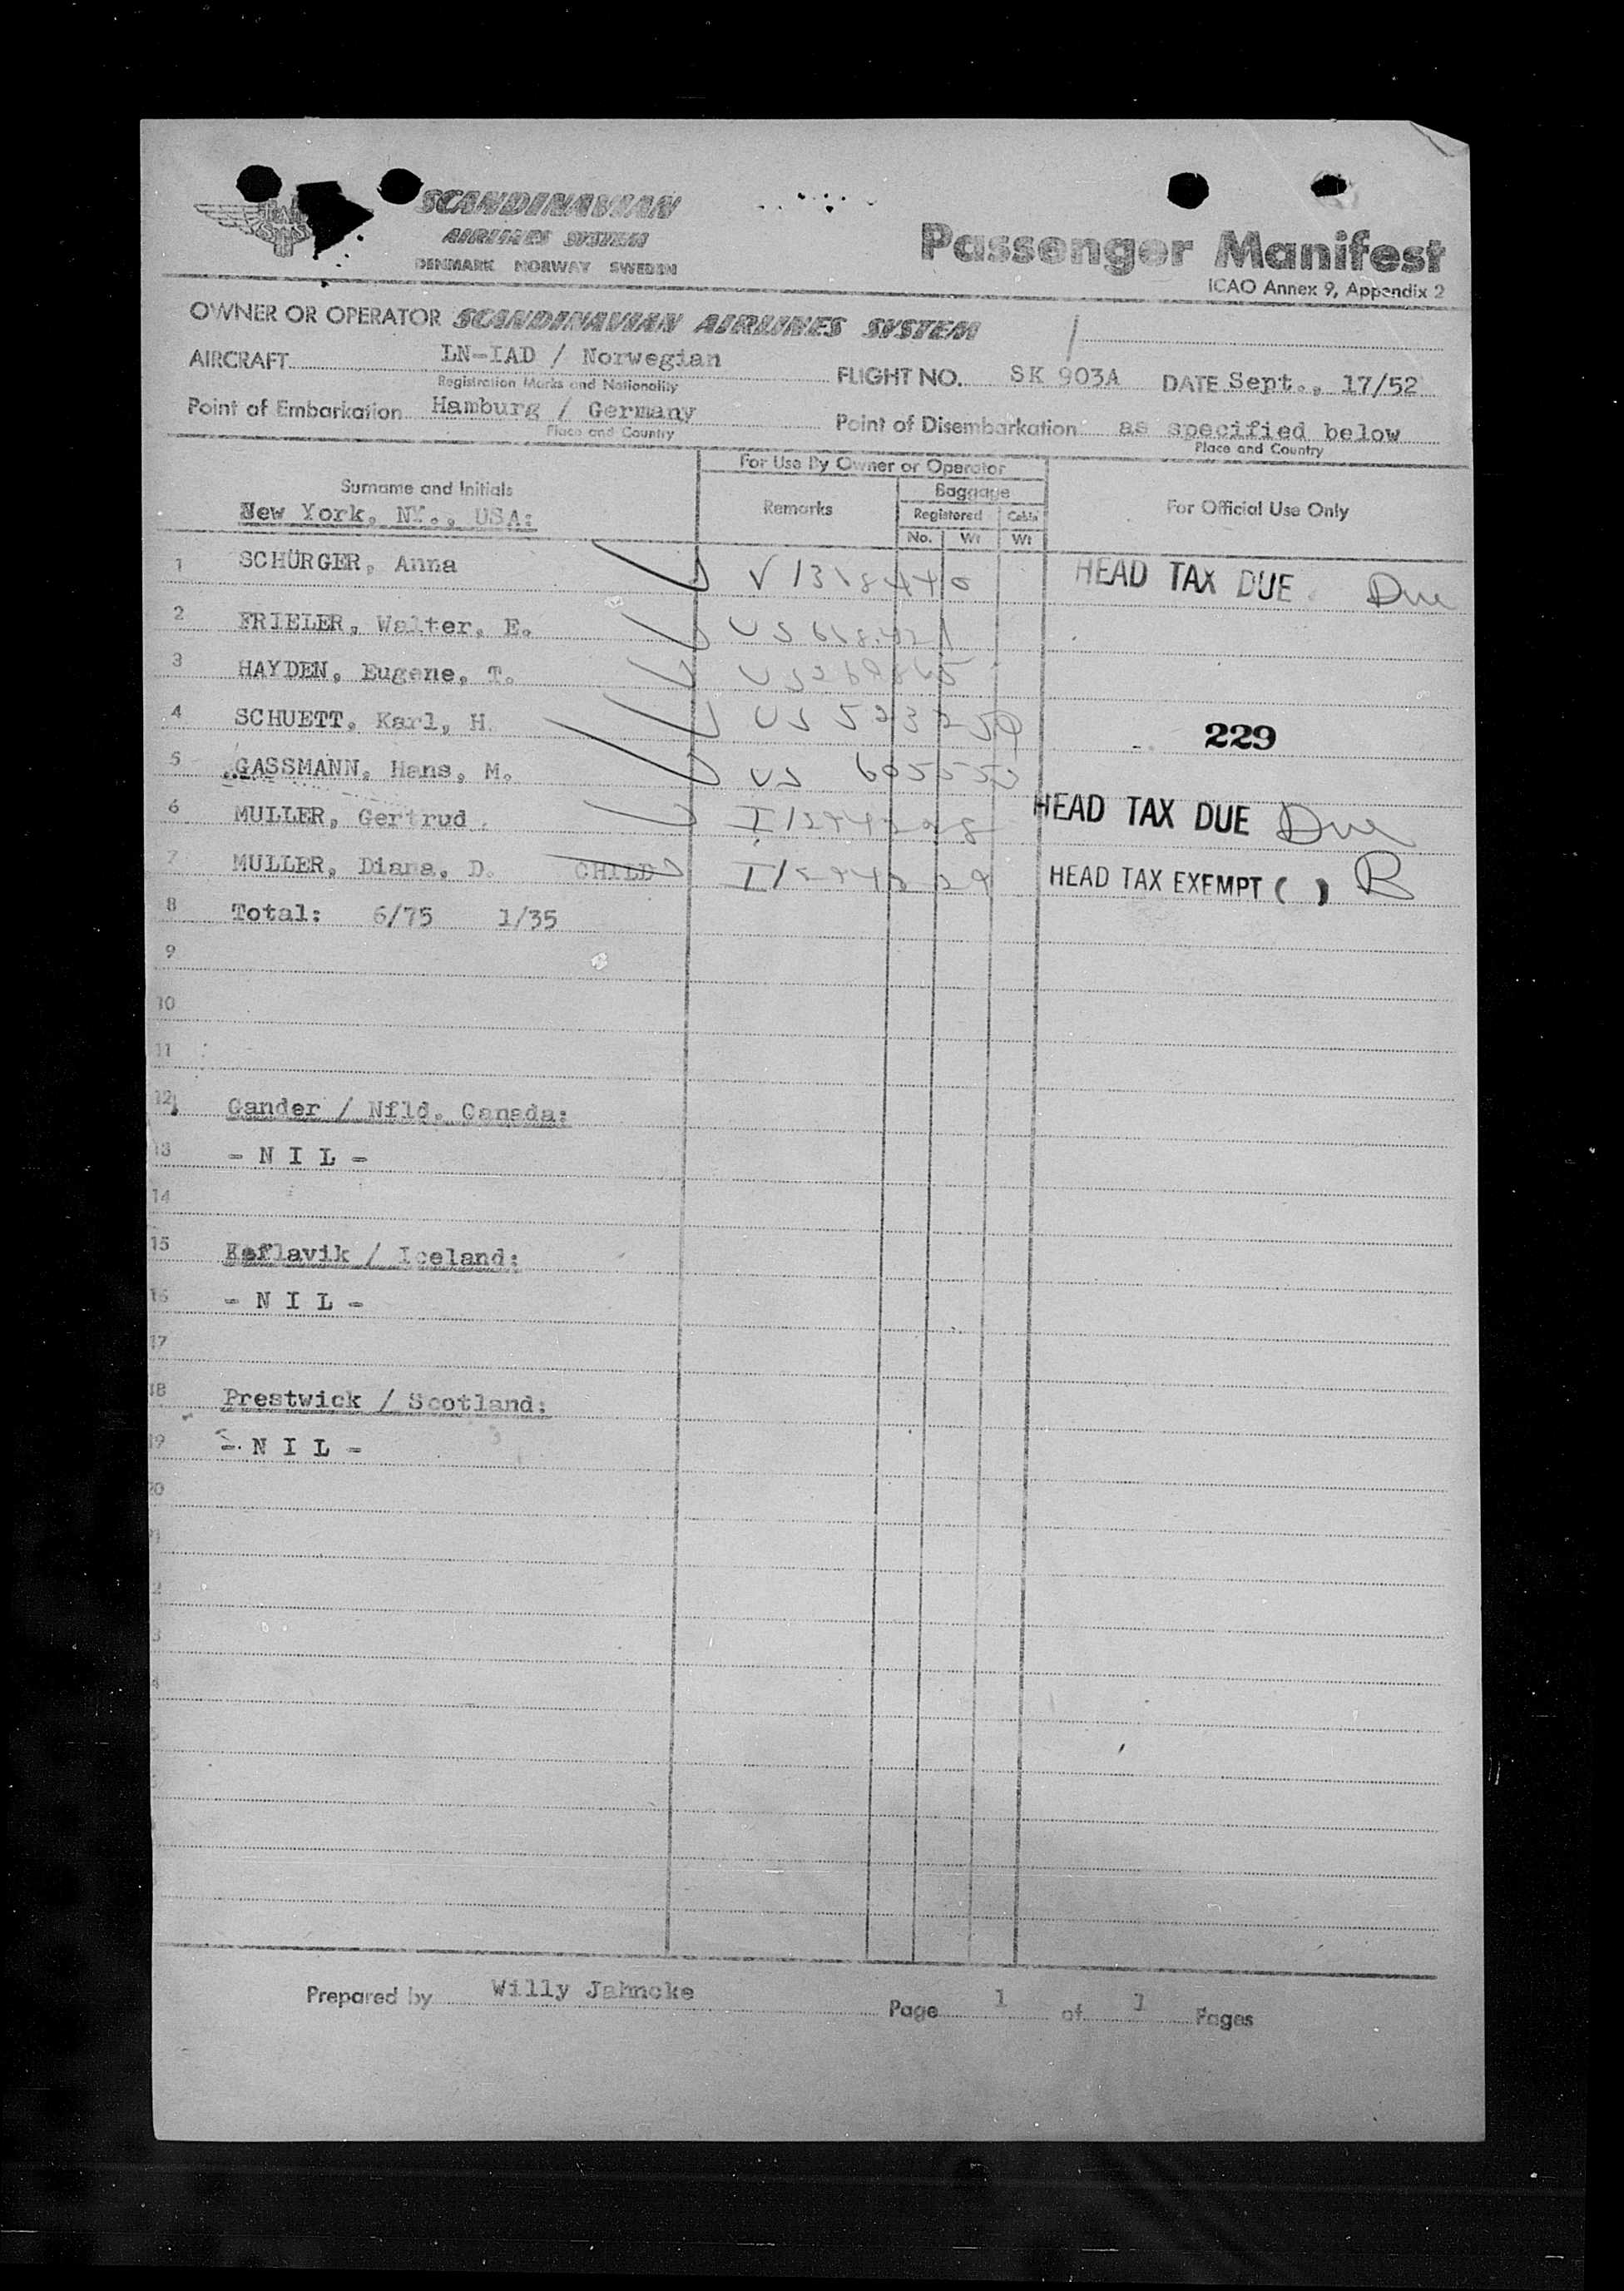 SCANDINAVIAN
AIRLINES SYSTEM
DENMARK NORWAY SWEDEN
Passenger Manifest
ICAO Annex 9, Appendix 2
OWNER OR OPERATOR SCANDINAVIAN AIRLINES SYSTEM
AIRCRAFT LN-IAD / Norwegian
Registration Marks and Nationality
FLIGHT NO. SK 903A DATE Sept., 17/52
Point of Embarkation Hamburg / Germany
Place and Country
Point of Disembarkation as specified below
Place and Country
Surname and Initials
New York, NY., USA:
For Use By Owner or Operator
Remarks
Baggage
Registered Cabin
No. Wt Wt
For Official Use Only
1 SCHÜRGER, Anna V 1318440 HEAD TAX DUE Due
2 FRIELER, Walter, E. US
3 HAYDEN, Eugene, T. US
4 SCHUETT, Karl, H. US 229
5 GASSMANN, Hans, M. US
6 MULLER, Gertrud HEAD TAX DUE Due
7 MULLER, Diana, D. CHILD HEAD TAX EXEMPT ( ) B
8 Total: 6/75 1/35
9
10
11
12 Gander / Nfld. Canada:
13 - N I L -
14
15 Keflavik / Iceland:
16 - N I L -
17
18 Prestwick / Scotland:
19 - N I L -
20
Prepared by Willy Jahncke Page 1 of 1 Pages